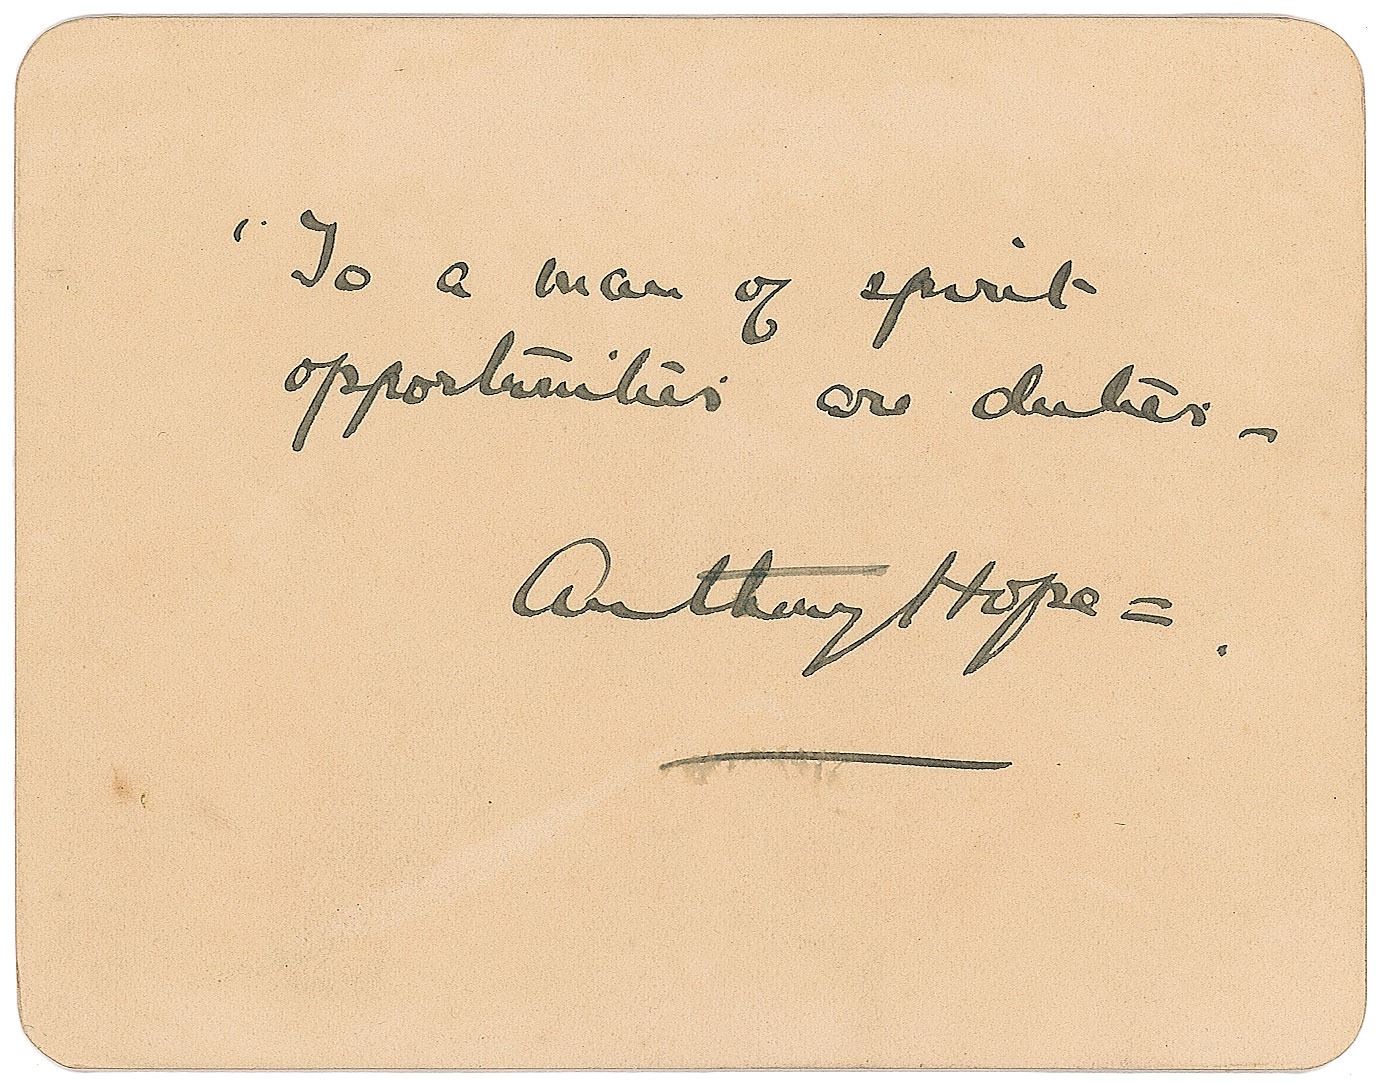 "To a man of spirit
opportunities are duties –
Anthony Hope =.